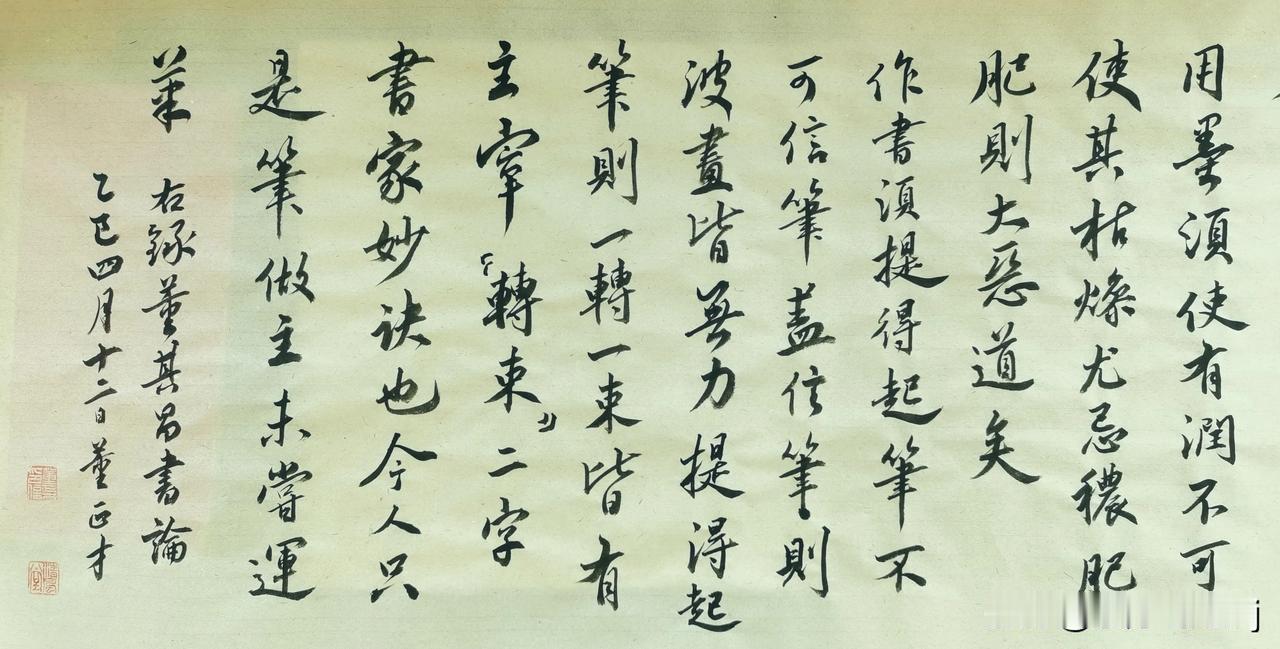 用墨須使有潤不可
使其枯燥尤忌穠肥
肥則大惡道矣
作書須提得起筆不
可信筆蓋信筆則
波畫皆無力提得起
筆則一轉一束皆有
主宰『轉束』二字
書家妙訣也今人只
是筆做主未嘗運
筆
右錄董其昌書論
乙巳四月十二日董正才